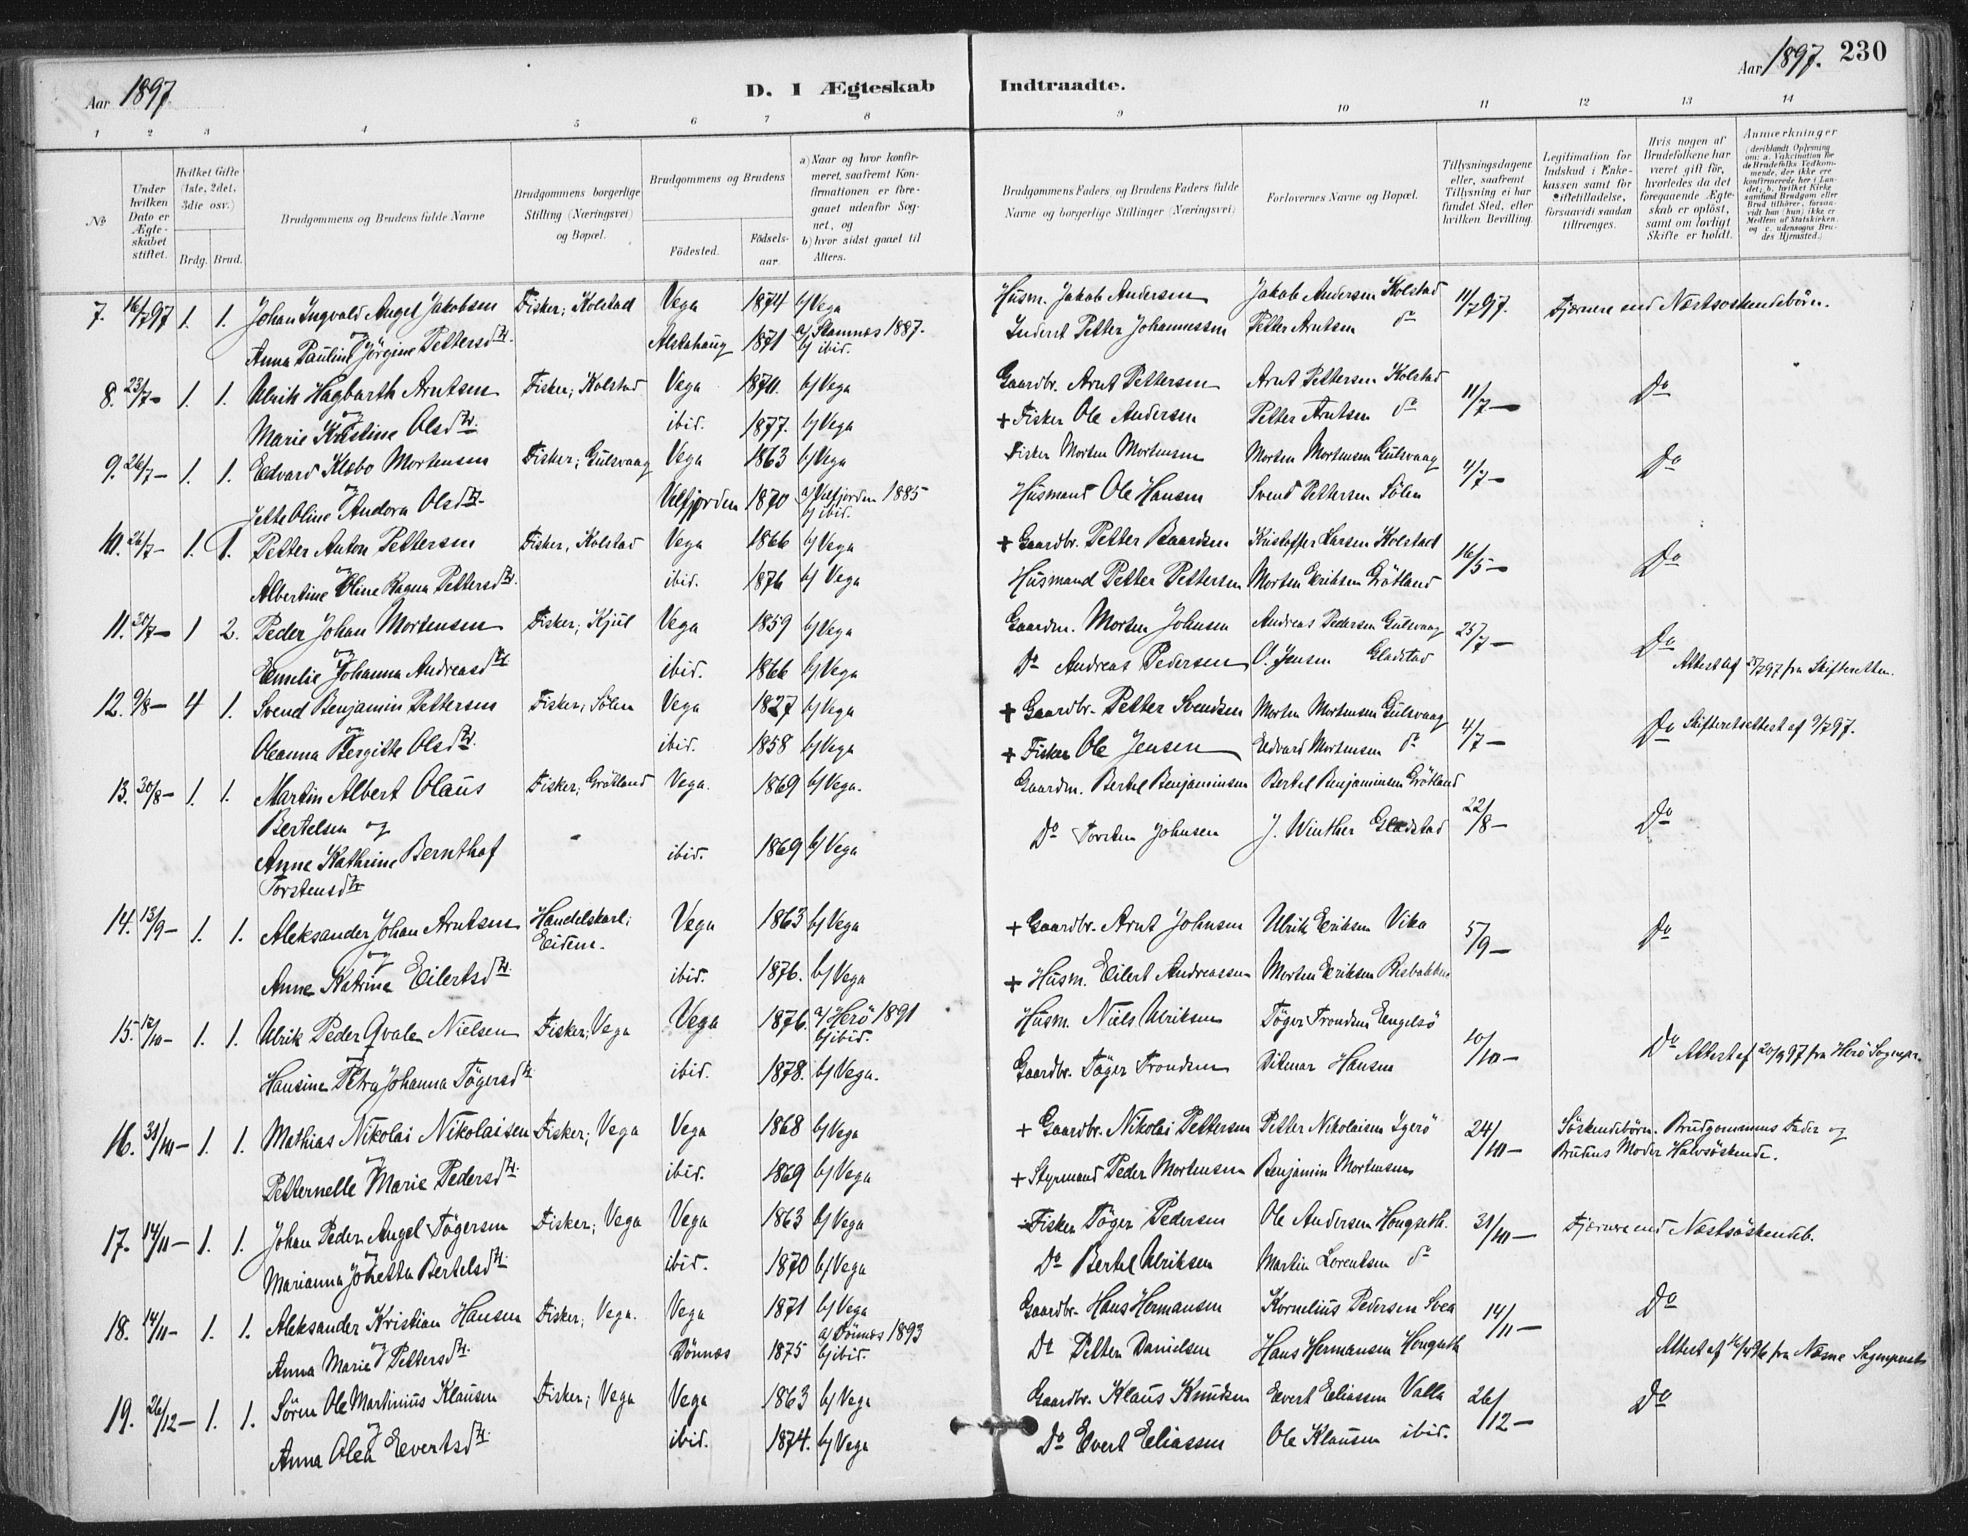 Aar 1897.
D. I Ægteskab Indtraadte.
Aar 1897. 230
1 2 3 4 5 6 7 8 9 10 11 12 13 14
No
Under hvilken Dato er Ægteskabet stiftet.
Hvilket Gifte (1ste, 2det, 3die osv.)
Brdg. Brud.
Brudgommens og Brudens fulde Navne
Brudgommens borgerlige Stilling (Næringsvei) og Bopæl.
Brudgommens og Brudens
Födested. Födselsaar.
a) Naar og hvor konfirmeret, saafremt Konfirmationen er foregaaet udenfor Sognet, og
b) hvor sidst gaaet til Alters.
Brudgommens Faders og Brudens Faders fulde Navne og borgerlige Stillinger (Næringsvei)
Forlovernes Navne og Bopæl.
Tillysningsdagene eller, saafremt Tillysning ei har fundet Sted, efter hvilken Bevilling.
Legitimation for Indskud i Enkekassen samt for Stiftetilladelse, forsaavidt saadan tiltrænges.
Hvis nogen af Brudefolkene har været gift för, hvorledes da det foregaaende Ægteskab er oplöst, samt om lovligt Skifte er holdt.
Anmærkninger (deriblandt Oplysning om: a. Vakcination for de Brudefolks Vedkommende, der ikke ere konfirmerede her i Landet; b. hvilket Kirkesamfund Brudgom eller Brud tilhörer, forsaavidt han (hun) ikke er Medlem af Statskirken, og c. udensogns Brudes Hjemsted.)
7. 16/7 97 1. 1. Johan Ingvald Angel Jakobsen Fisker; Kolstad Vega 1874 b/ Vega Husm. Jakob Andersen Jakob Andersen Kolstad 11/7 97. Fjernere end Næstsöskendebörn.
og
Anna Pauline Jörgine Pettersdtr. Alstahaug 1871 a/ Stamnes 1887. b/ ibid. Inderst Petter Johannessen Petter Arntsen do
8. 23/7 – 1. 1. Ulrik Hagbarth Arntsen Fisker; Kolstad Vega 1870. b/ Vega Gaardbr. Arnt Pettersen Arnt Pettersen Kolstad 11/7 – Do
og
Marie Kristine Olsdtr. ibid. 1877. b/ Vega + Fisker Ole Andersen Petter Arntsen do
9. 26/7 – 1. 1. Edvard Klæbo Mortensen Fisker; Gulsvaag Vega 1863 b/ Vega Fisker Morten Mortensen Morten Mortensen Gulsvaag 4/7 – Do
og
Jette Oline Andora Olsdtr. Velfjorden 1870 a/ Velfjorden 1885 b/ ibid. Husmand Ole Hansen Svend Pettersen Sölen
10. 26/7 – 1. 1. Petter Anton Pettersen Fisker, Kolstad Vega 1866 b/ Vega + Gaardbr. Petter Baardsen Kristoffer Larsen Kolstad 16/5 – Do
og
Albertine Oline Ragna Pettersdtr. ibid. 1876 b/ Vega Husmand Petter Pettersen Morten Eriksen Grötland
11. 30/7 – 1 2. Peder Johan Mortensen Fisker; Kjul Vega 1859 b/ Vega Gaardm. Morten Johnsen Andreas Pedersen Gulsvaag 25/7 – Do
og
Emelie Johanna Andreasdtr. ibid. 1866 b/ Vega Do Andreas Pedersen O. Jensen Gladstad Attest af 27/7 97 fra Skifteretten.
12. 9/8 – 4 1. Svend Benjamin Pettersen Fisker; Sölen Vega 1827 b/ Vega + Gaardbr. Petter Svendsen Morten Mortensen Gulsvaag 4/7 – Do Skifteretsattest af 9/7 97.
og
Oleanna Bergitte Olsdtr. ibid. 1858 b/ Vega + Fisker Ole Jensen Edvard Mortensen do
13. 30/8 – 1. 1. Martin Albert Olaus Fisker; Grötland Vega. 1869 b/ Vega. Gaardm. Bertel Benjaminsen Bertel Benjaminsen Grötland 22/8 – Do
Bertelsen og
Anne Kathrine Bernthof ibid. 1869 b/ Vega Do Torsten Johnsen J. Winther Gladstad
Torstensdtr
14. 13/9 – 1. 1. Aleksander Johan Arntsen Handelskarl; Eidem. Vega 1863 b/ Vega + Gaardbr. Arnt Johnsen Ulrik Eriksen Vika 5/9 – Do
og
Anne Katrine Eilertsdtr. ibid. 1876. b/ Vega + Husm. Eilert Andreassen Morten Eriksen Risbakken
15. 12/10 – 1. 1. Ulrik Peder Qvale Nielsen Fisker; Vega Vega 1876. a/ Herö 1891 b/ ibid. Husm. Niels Ulriksen Töger Trondsen Engelsö 10/10 – Do Attest af 20/9 97 fra Herö Sognepr.
og
Hansine Petra Johanna Tögersdtr ibid. 1878. b/ Vega. Gaardbr. Töger Trondsen Ditmar Hansen
16. 31/10 – 1. 1. Mathias Nikolai Nikolaisen Fisker; Vega Vega 1868 b/ Vega + Gaardbr. Nikolai Pettersen Petter Nikolaisen Igerö 24/10 – Söskendebörn. Brudgommens Fader og
og
Petternelle Marie Pedersdtr. ibid. 1869 b/ Vega + Styrmand Peder Mortensen Benjamin Mortensen Brudens Moder Halvsöskende.
17. 14/11 – 1. 1. Johan Peder Angel Tögersen Fisker; Vega Vega 1863 b/ Vega Fisker Töger Pedersen Ole Andersen Hongseth. 31/10 – Fjernere end Næstsöskendeb.
og
Marianna Jonetta Bertelsdtr. ibid. 1870 b/ Vega Do Bertel Ulriksen Martin Lorentsen do
18. 14/11 – 1. 1. Aleksander Kristian Hansen Fisker; Vega. Vega 1871 b/ Vega Gaardbr. Hans Hermansen Kornelius Pedersen Svea 14/11 – Do
og
Anna Marie Pettersdtr. Dönnæs 1875 a/ Dönnæs 1893 b/ ibid. Do Petter Danielsen Hans Hermansen Hongseth Attest af 96 fra Næsne Sognepræst
19. 26/12 – 1. 1. Sören Ole Martinius Klausen Fisker; Vega Vega 1863 b/ Vega Gaardbr. Klaus Knudsen Evert Eliassen Valla 26/12 – Do
og
Anna Olea Evertsdtr. ibid. 1874. b/ Vega Do Evert Eliassen Ole Klausen ibid.